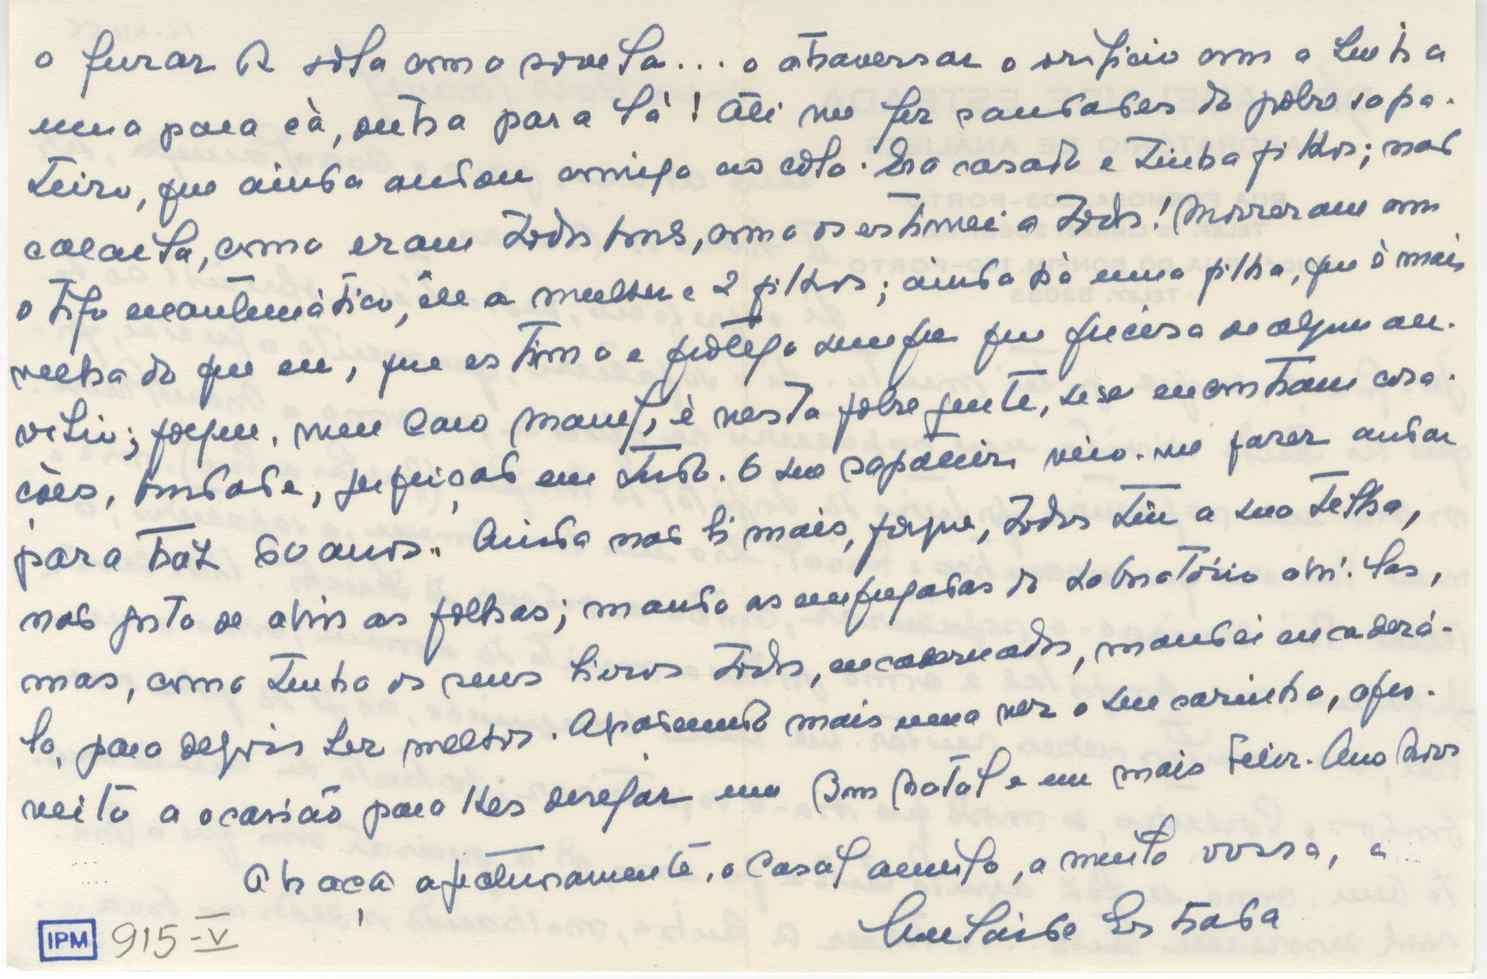 o furar a sola com a sovela... o atravessar o orifício com a linha
uma para cà, outra para lá! Ali me fez saudades do pobre sapa-
teiro, que ainda andou comigo ao colo. Era casado e tinha filhos; nas
como eram todos bons, como os estimei a todos! Morreram com
o tifo exantemático, êle a mulher e 2 filhos; ainda há uma filha, que é mais
velha do que eu, que estimo e protejo sempre que precisa de algum au-
xilio; porque, meu caro Manuel, é nesta pobre gente, que se encontram cora-
ções, bondade, perfeição em tudo. O seu sapateiro veio-me fazer andar
para traz 60 anos. Ainda não li mais, porque, todos têm a sua telha,
não gosto de abrir as folhas; mando as empregadas do Laboratório abri-las,
mas, como tenho os seus livros todos, encadernados, mandei encaderná-
lo, para depois ler melhor. Agradecendo mais uma vez o seu carinho, apro-
veito a ocasião para lhes desejar um Bom Natal e um mais Feliz Ano Novo
Abraça afectuosamente, o Casal amigo, a muito vossa, a
Estrada
IPM 915-V